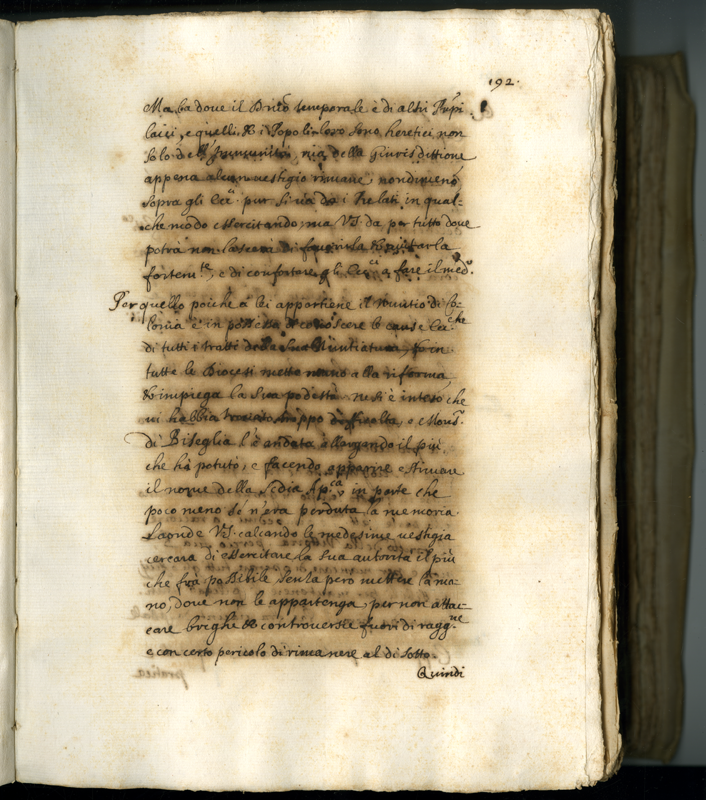 192.
Ma la dove il Dnio temporale è di altri Prpi
laici, e quelli, & i Popoli loro sono heretici, non
solo dell' Immunità, mà della Giurisdittione
appena alcun vestigio rimane, nondimeno
sopra gli Ecci pur si và da i Prelati in qual-
che modo essercitando, ma VS. da per tutto dove
potrà non lascerà di favorirla & aiutarla
fortemte, e di confortare gli Ecci a fare il medo.
Per quello poiche à lei appartiene il Nuntio di Co-
lonia è in possesso di conoscere le cause Ecche
di tutti i tratti della sua Nuntiatura, & in
tutte le Diocesi mette mano alla riforma,
& impiega la sua podestà. nè si è inteso che
vi habbia trovato troppo difficoltà, e Monsr.
di Biseglia l'è andata allargando il più
che hà potuto, e facendo apparire e stimare
il nome della Sedia Apca in parte che
poco meno se n'era perduta la memoria.
Laonde VS. calcando le medesime vestigia
cercarà di essercitare la sua autorità il più
che fia possibile senza però mettere la ma-
no, dove non le appartenga, per non attac-
care brighe & controversie fuori di raggne
e con certo pericolo di rimanere al di sotto.
Quindi